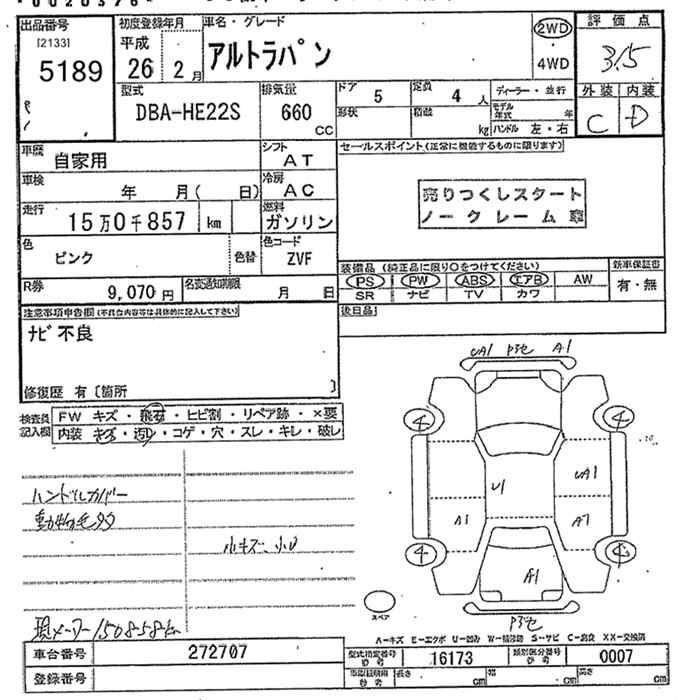 出品番号
[2133]
5189
初度登録年月
平成
26 2月
車名・グレード
アルトラパン
2WD
4WD
評価点
3.5
外装 内装
C D
型式
DBA-HE22S
排気量
660 CC
ドア 5
定員 4 人
形状
積載 kg
ディーラー・並行
モデル年式 年
ハンドル 左・右
車歴 自家用
シフト AT
車検 年 月( 日)
冷房 AC
走行 15万0千857 km
燃料 ガソリン
色 ピンク
色替
色コード ZVF
R券 9,070 円
名変通知期限 月 日
セールスポイント(正常に機能するものに限ります)
売りつくしスタート
ノークレーム車
装備品(純正品に限り○をつけてください)
PS PW ABS エアB AW
SR ナビ TV カワ
新車保証書
有・無
後日品
注意事項申告欄(不具合内容等は具体的に記入して下さい)
ナビ不良
修復歴 有〔箇所 〕
検査員記入欄
FW キズ・飛石・ヒビ割・リペア跡・×要
内装 キズ・汚れ・コゲ・穴・スレ・キレ・破レ
ハンドルカバー
動物毛
小キズ、小U
現メーター150858km
UA1 A1
4 4
UA1
U1
A1 A1
4 4
A1
スペア
A-キズ E-エクボ U-凹み W-補修跡 S-サビ C-腐食 XX-交換済
車台番号 272707
登録番号
型式指定番号 参考 16173
類別区分番号 参考 0007
長さ cm
幅 cm
高さ cm